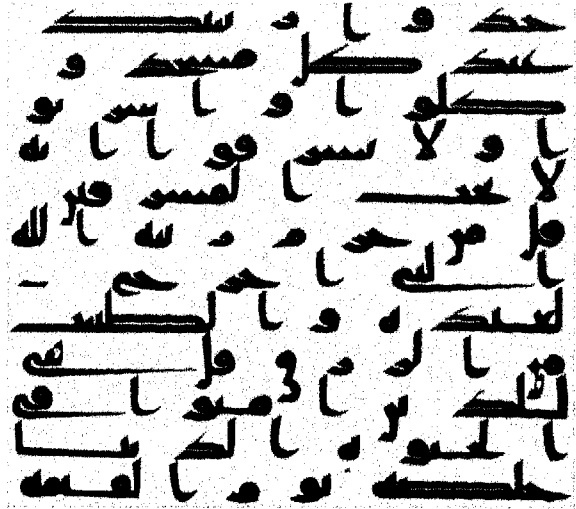 خذوا زينتكم
عند كل مسجد و
كلوا واشربو
ا ولا تسرفوا انه
لا يحب المسرفين
قل من حرم زينه الله
التى اخرج
لعبده والطيبت
من الرزق قل هى
للذين امنوا فى
الحيوه الدنيا
خلصه يوم القيمه